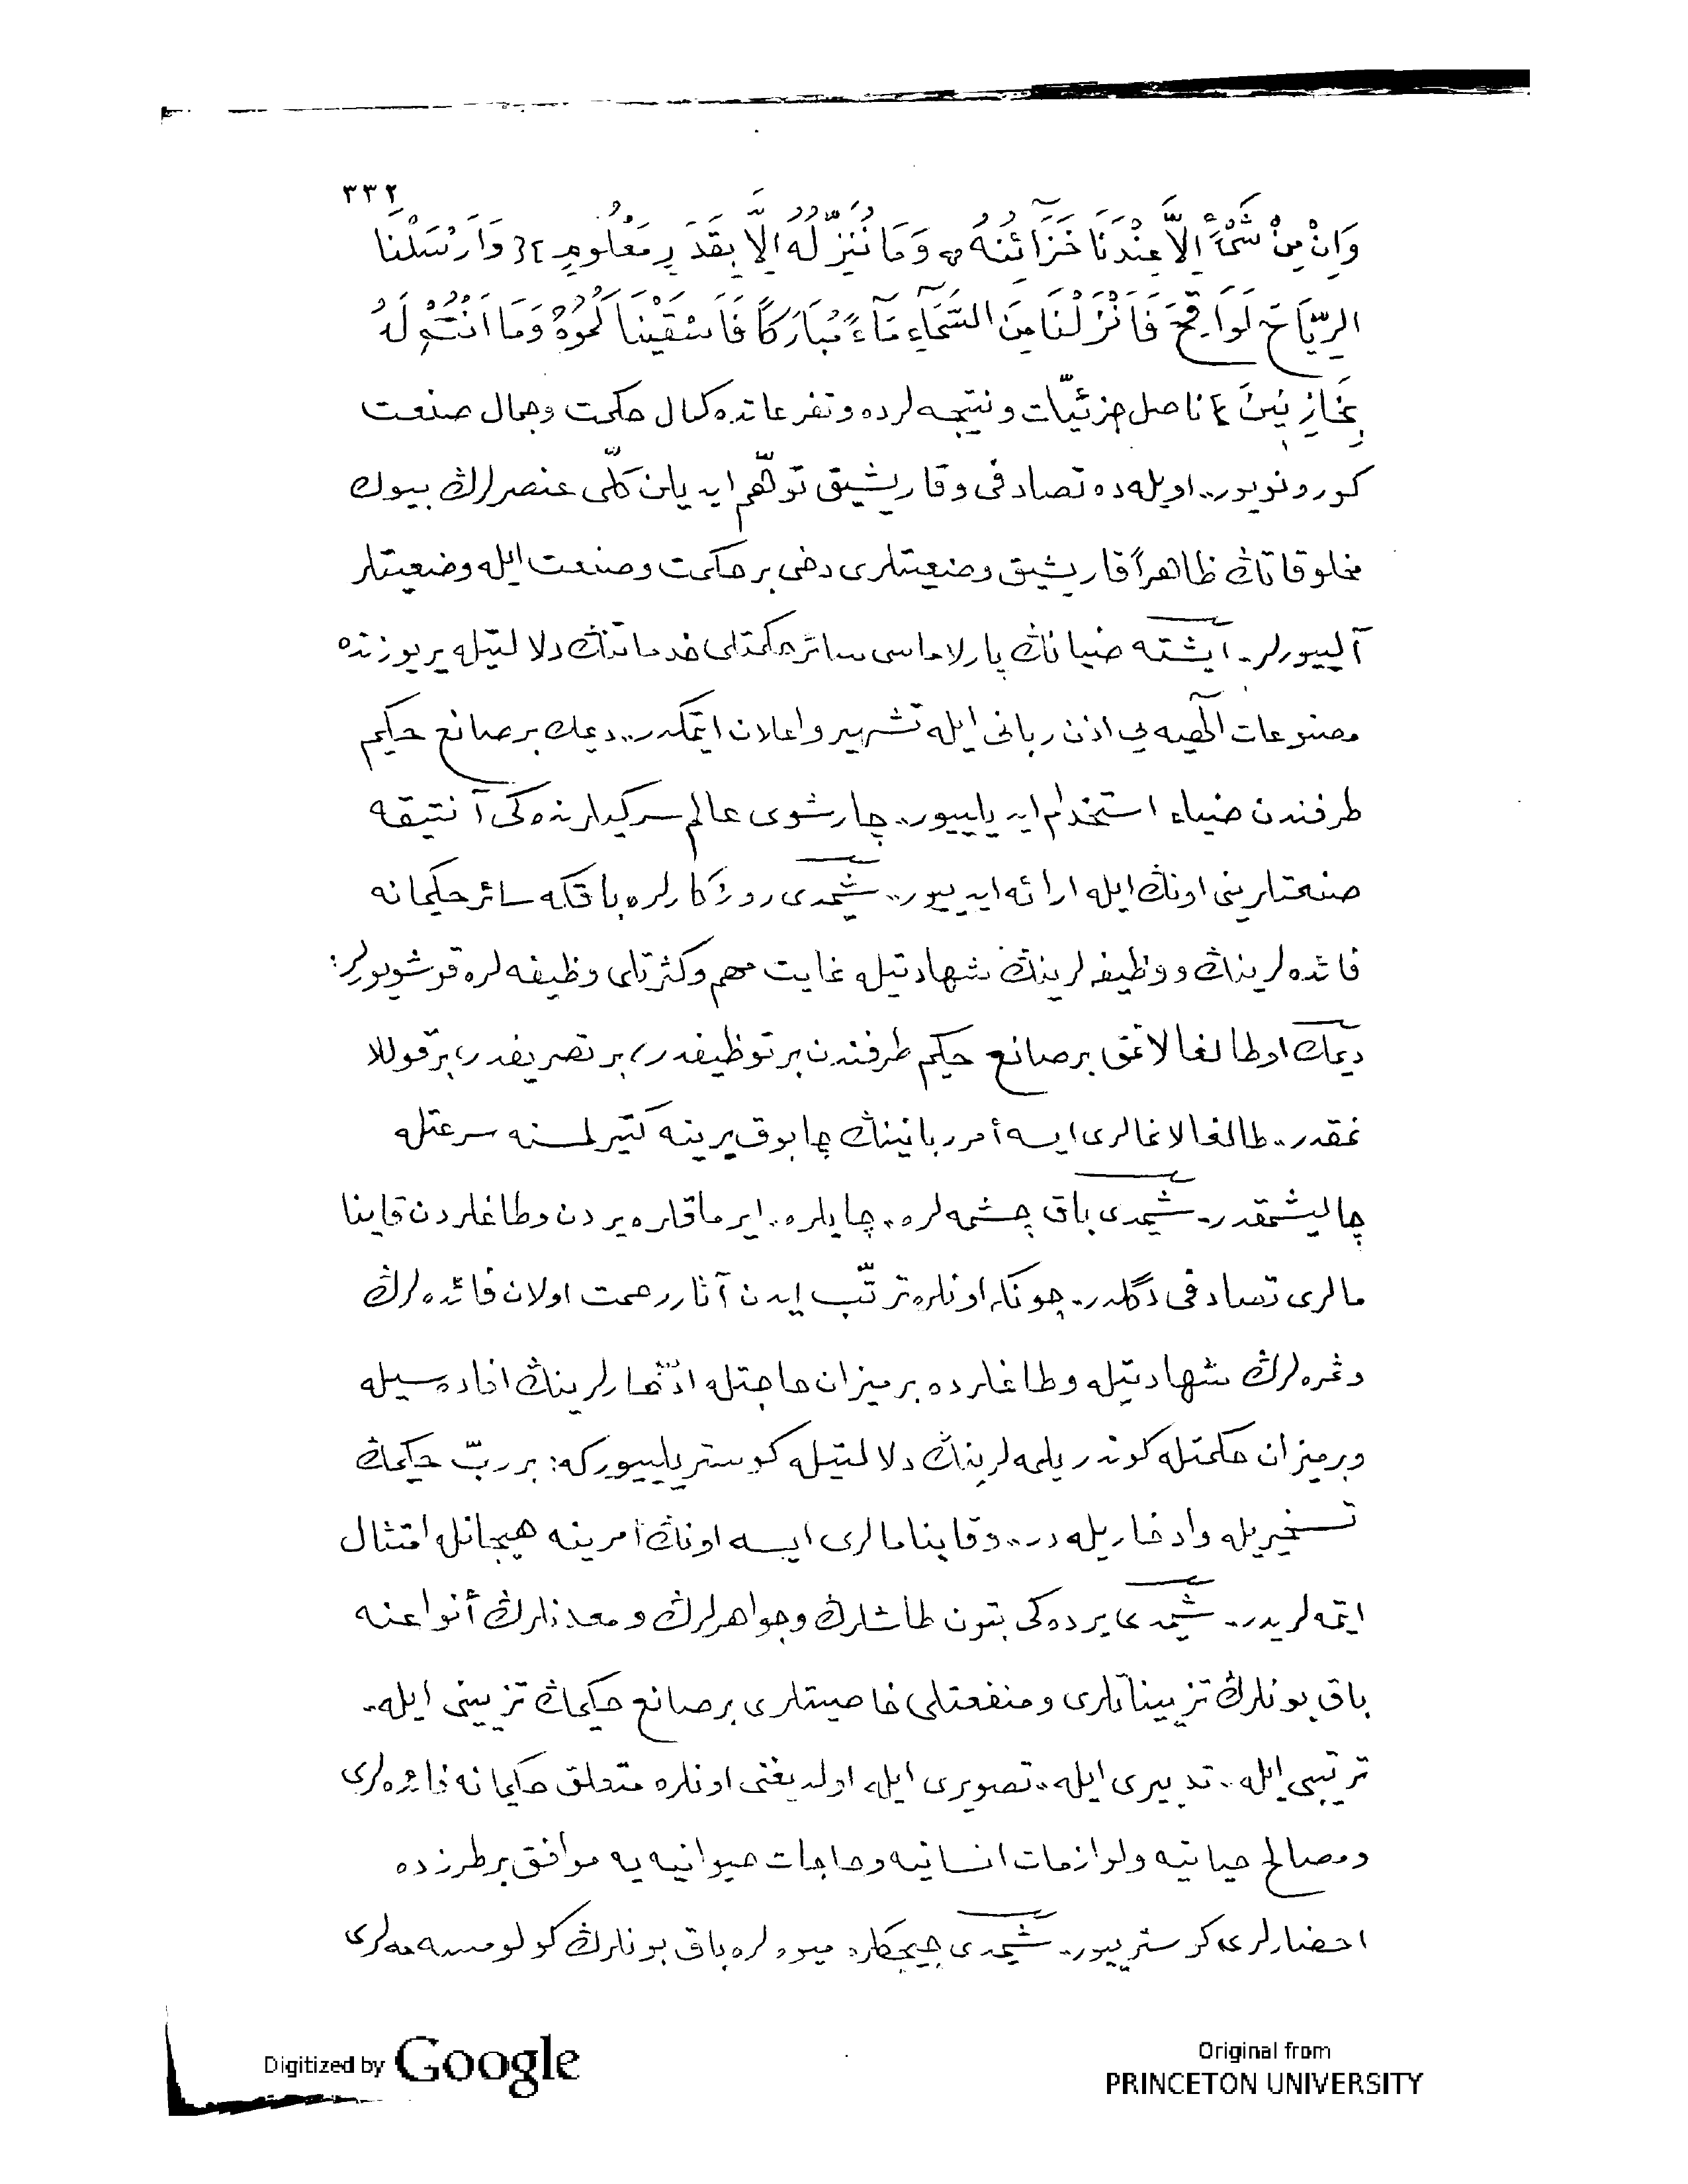 ٣٣٢
وَاِنْ مِنْ شَیْءٍ اِلَّا عِنْدَنَا خَزَٓائِنُهُ وَمَا نُنَزِّلُهُٓ اِلَّا بِقَدَرٍ مَعْلُومٍ ❊ وَاَرْسَلْنَا
الرِّیَاحَ لَوَاقِحَ فَاَنْزَلْنَا مِنَ السَّمَٓاءِ مَٓاءً مُبَارَكًا فَاَسْقَیْنَا كُمُوهُ وَمَٓا اَنْتُمْ لَهُ
بِخَازِنِینَ ❊ ناصل جزئیّات ونتیجه لرده وتفرعاتده كمال حكمت وجمال صنعت
كورونویور.. اویله ده تصادفی وقاریشیق توهّم ایدیلن كلّی عنصرلرڭ بیوك
مخلوقاتڭ ظاهراً قاریشیق وضعیتلری دخی بر حكمت وصنعت ایله وضعیتلر
آلییورلر.. ایشته ضیانڭ پارلاماسی سائر حكمتلی خدماتنڭ دلالتیله یر یوزنده
مصنوعات الٰهیه یی اذن ربانی ایله تشهیر واعلان ایتمكدر.. دیمك بر صانع حكیم
طرفندن ضیاء استخدام ایدیلییور.. چارشوی عالم سركیلرنده كی آنتیقه
صنعتلرینی اونڭ ایله ارائه ایدییور.. شیمدی روزكارلره باقكه سائر حكیمانه
فائده لرینڭ ووظیفه لرینڭ شهادتیله غایت مهم وكثرتلی وظیفه لره قوشویورلر:
دیمك اوطالغالانمق بر صانع حكیم طرفندن بر توظیفدر، بر تصریفدر، بر قوللا
نمقدر.. طالغالانمالری ایسه أمر ربانینڭ چابوق یرینه كتیرلمسنه سرعتله
چالیشمقدر.. شیمدی باق چشمه لره.. چایلره.. ایرماقلره یردن وطاغلردن قاینا
مالری تصادفی دگلدر.. چونكه اونلره ترتّب ایدن آثار رحمت اولان فائده لرڭ
وثمره لرڭ شهادتیله وطاغلرده بر میزان حاجتله ادّخارلرینڭ افاده سیله
وبر میزان حكمتله كوندریلمه لرینڭ دلالتیله كوستریلییوركه: بر ربّ حكیمڭ
تسخیریله وادخاریله در.. وقاینامالری ایسه اونڭ أمرینه هیجانله امتثال
ایتمه لریدر.. شیمدی یرده كی بتون طاشلرڭ وجواهرلرڭ ومعدنلرڭ أنواعنه
باق بونلرڭ تزییناتلری ومنفعتلی خاصیتلری بر صانع حكیمڭ تزیینی ایله..
ترتیبی ایله.. تدبیری ایله.. تصویری ایله اولدیغنی اونلره متعلق حكیمانه فائده لری
ومصالح حیاتیه ولوازمات انسانیه وحاجات حیوانیه یه موافق بر طرزده
احضارلری كوسترییور.. شیمدی چیچكلره میوه لره باق بونلرڭ كولومسه مه لری
Digitized by Google
Original from
PRINCETON UNIVERSITY